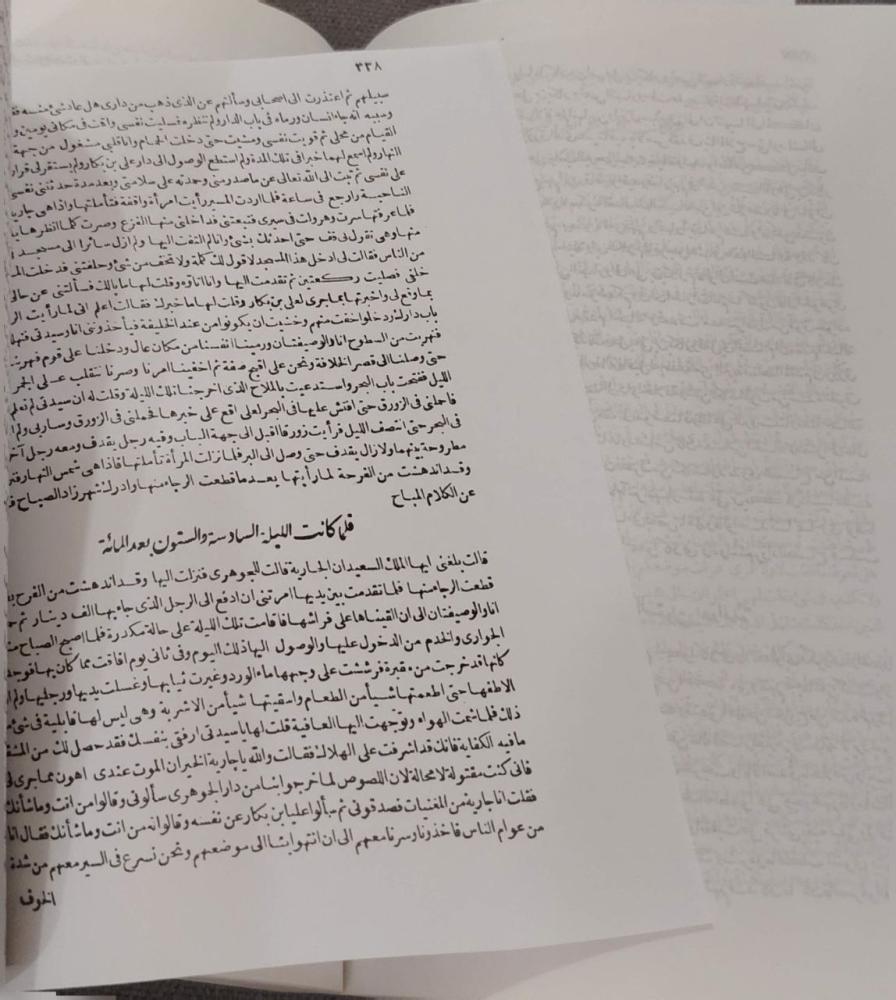 ٣٣٨
سبيلهم ثم اعتذرت الى اصحابى وسألتهم عن الذى ذهب من دارى هل عاد شئ منه فقـ
وسببه انه جاء انسان ورماه فى باب الدار ولم ننظره فسليت نفسى واقت فى مكانى يومين و
القيام من محلى ثم قويت نفسى ومشيت حتى دخلت الحمام وانا قلبى مشغول من جهة
النهار ولم اسمع لهما خبرا فى تلك المدة ولم استطع الوصول الى دار على بن بكار ولم يستقر لى قرار
على نفسى ثم تبت الى الله تعالى عن ما صدر منى وحمدته على سلامتى وبعد مدة حدثتنى نفسى
الناحية وارجع فى ساعة فلما اردت المسير رأيت امرأة واقفة فتأملتها واذا هى جارية
فلما عرفتها سرت وهروات فى سيرى فتبعتنى فداخلنى منها الفزع وصرت كلما انظرها
منها وهى تقول لى قف حتى احدثك بشئ وانا لم التفت اليها ولم ازل سائرا الى مسجد
من الناس فقالت لى ادخل هذا المسجد لاقول لك كلمة ولا تخف من شئ وحلفتنى فدخلت المـ
خلفى فصليت ركعتين ثم تقدمت اليها وانا اتأوه وقلت لها ما بالك فسألتنى عن حالى
بما وقع لى واخبرتها بما جرى لعلى بن بكار وقلت لها ما خبرك فقالت اعلم انى لما رأيت الر
باب دارك ودخلوا خفت منهم وخشيت ان يكونوا من عند الخليفة فيأخذونى انا وسيدتى فنهلك
فهربت من السطوح انا والوصيفتان ورمينا انفسنا من مكان عال ودخلنا على قوم فهربت
حتى وصلنا الى قصر الخلافة ونحن على اقبح صفة ثم اخفينا امرنا وصرنا نتقلب على الجمر
الليل ففتحت باب البحر واستدعيت بالملاح الذى اخرجنا تلك الليلة وقلت له ان سيدتى لم نعلم
فاحملنى فى الزورق حتى افتش عليها فى البحر لعلى اقع على خبرها فحملنى فى الزورق وسار بى ولم
فى البحر حتى انتصف الليل فرأيت زورقا اقبل الى جهة الباب وفيه رجل يقدف ومعه رجل آخر
مطروحة بينهما ولازال يقدف حتى وصل الى البر فلما نزلت المرأة تأملتها فاذا هى شمس النهار
وقد اندهشت من الفرحة لما رأيتها بعد ما قطعت الرجاء منها وادرك شهرزاد الصباح
عن الكلام المباح
فلما كانت الليلة السادسة والستون بعد المائة
قالت بلغنى ايها الملك السعيد ان الجارية قالت للجوهرى فنزلت اليها وقد اندهشت من الفرح
قطعت الرجاء منها فلما تقدمت بين يديها امرتنى ان ادفع الى الرجل الذى جاء بها الف دينار ثم
انا والوصيفتان الى ان القيناها على فراشها فاقامت تلك الليلة على حالة مكدرة فلما اصبح الصباح
الجوارى والخدم من الدخول عليها والوصول اليها ذلك اليوم وفى ثانى يوم افاقت مما كان بها فوجد
كأنها قد خرجت من مقبرة فرششت على وجهها ماء الورد وغيرت ثيابها وغسلت يديها ورجليها ولم
الاطفها حتى اطعمتها شيأ من الطعام واسقيتها شيأ من الاشربة وهى ليس لها قابلية فى شئ
ذلك فلما شمت الهواء وتوجهت اليها العافية قلت لها يا سيدتى ارفقى بنفسك فقد حصل لك من المشقـ
ما فيه الكفاية فانك قد اشرفت على الهلاك فقالت والله يا جارية الخير ان الموت عندى اهون مما جرى
فانى كنت مقتولة لا محالة لان اللصوص لما خرجوا بنا من دار الجوهرى سألونى وقالوا من انت وما شأنك
فقلت انا جارية من المغنيات فصدقونى ثم سألوا عليا بن بكار عن نفسه وقالوا له من انت وما شأنك فقال انا
من عوام الناس فاخذونا وسرنا معهم الى ان انتهوا بنا الى موضعهم ونحن نسرع فى السير معهم من شدة
الخوف